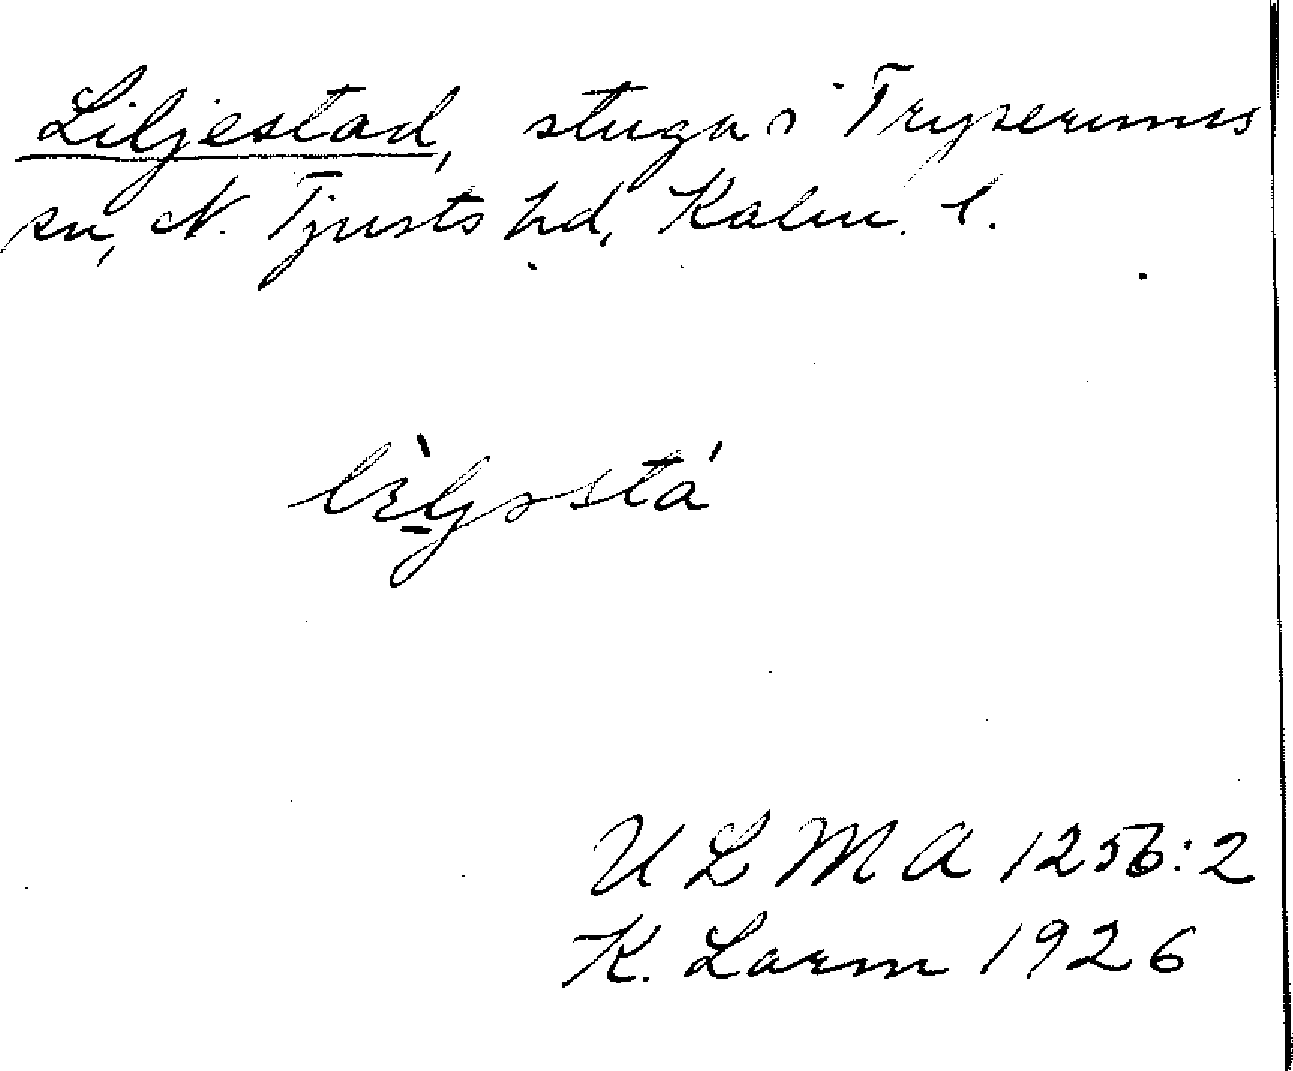 Liljestad, stuga i Tryserums
sn, N. Tjusts hd, Kalm. l.
ULMA 1256:2
K. Larm 1926